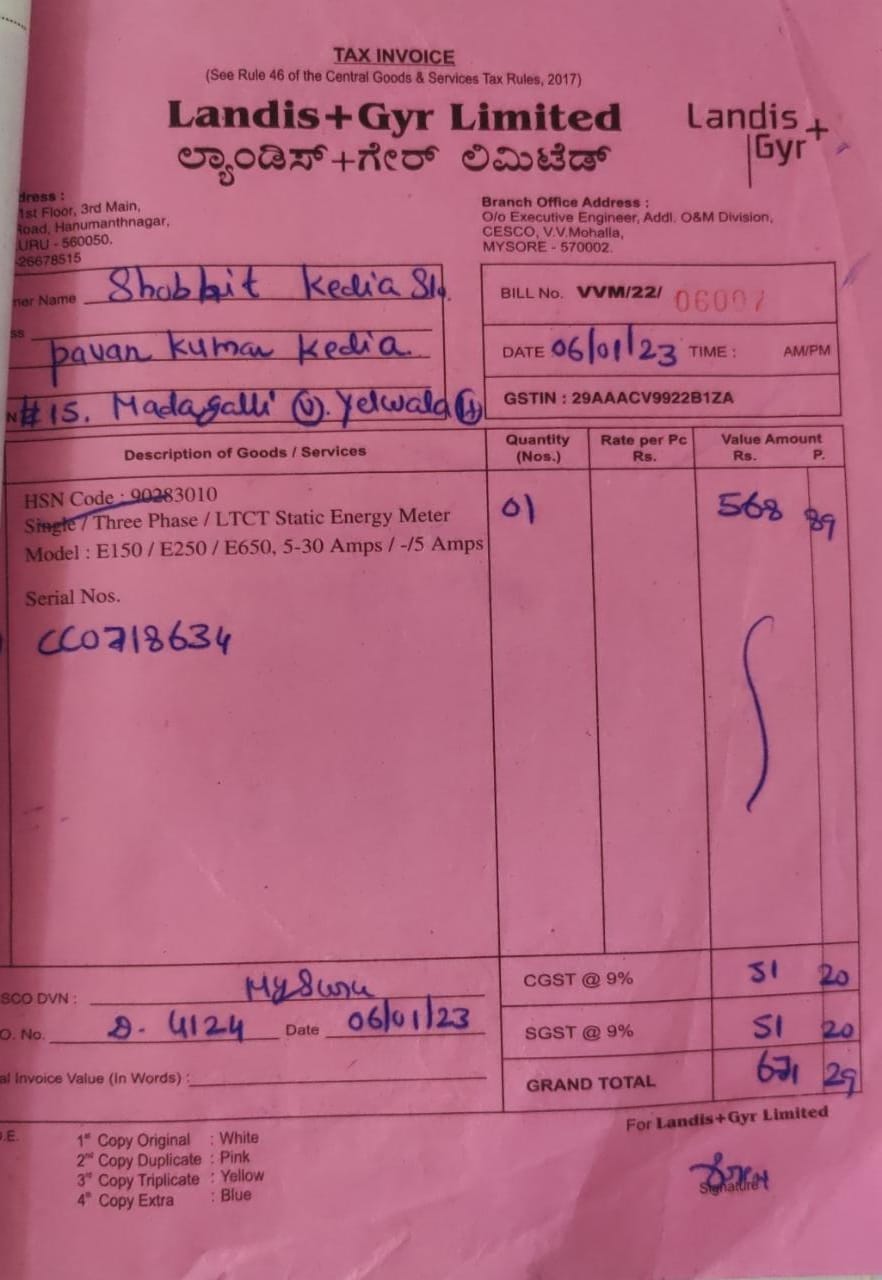 TAX INVOICE
(See Rule 46 of the Central Goods & Services Tax Rules, 2017)
Landis+Gyr Limited
ಲ್ಯಾಂಡಿಸ್+ಗೇರ್ ಲಿಮಿಟೆಡ್
Landis
Gyr+
dress :
1st Floor, 3rd Main,
Road, Hanumanthnagar,
URU - 560050.
26678515
Branch Office Address :
O/o Executive Engineer, Addl. O&M Division,
CESCO, V.V.Mohalla,
MYSORE - 570002.
ner Name Shobhit Kedia S/o.
ss
pavan kumar kedia
N #15. Madagalli (V). Yelwala (H)
BILL No. VVM/22/ 06007
DATE 06/01/23 TIME : AM/PM
GSTIN : 29AAACV9922B1ZA
Description of Goods / Services Quantity (Nos.) Rate per Pc Rs. Value Amount Rs. P.
HSN Code : 90283010
Single / Three Phase / LTCT Static Energy Meter 01 568 89
Model : E150 / E250 / E650, 5-30 Amps / -/5 Amps
Serial Nos.
CC0718634
CGST @ 9% 51 20
SCO DVN : Mysuru
O. No. D- 4124 Date 06/01/23
SGST @ 9% 51 20
al Invoice Value (In Words) :
GRAND TOTAL 671 29
For Landis+Gyr Limited
.E.
1st Copy Original : White
2nd Copy Duplicate : Pink
3rd Copy Triplicate : Yellow
4th Copy Extra : Blue
Signature